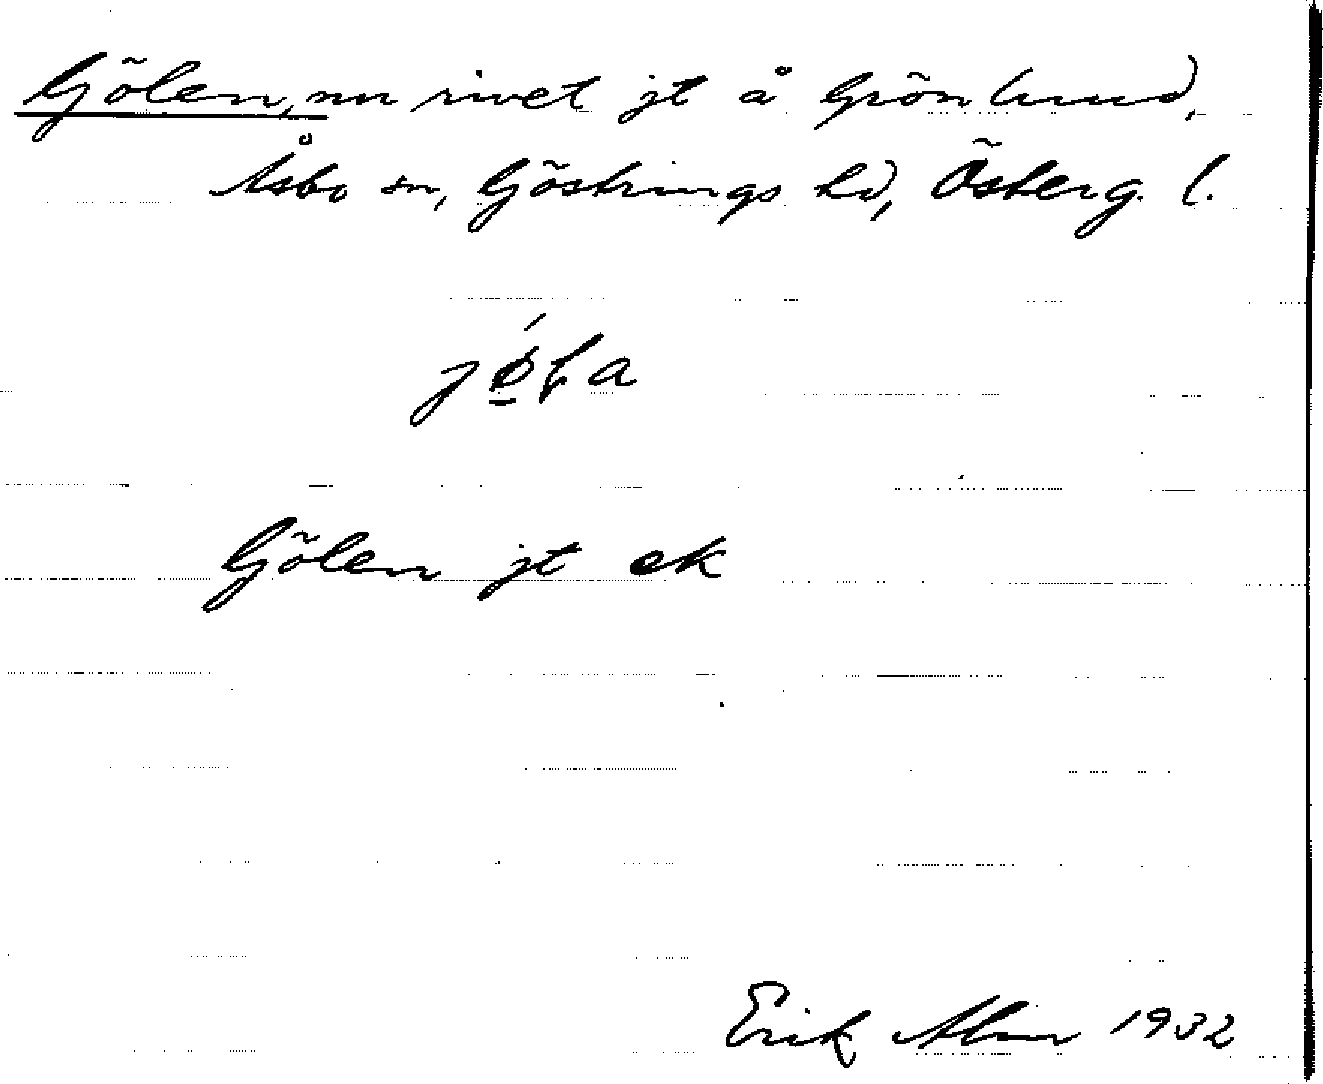 Gölen, nu rivet jt å Grönlund,
Åsbo sn, Göstrings hd, Österg. l.
Gölen jt ek
Erik Alm 1932